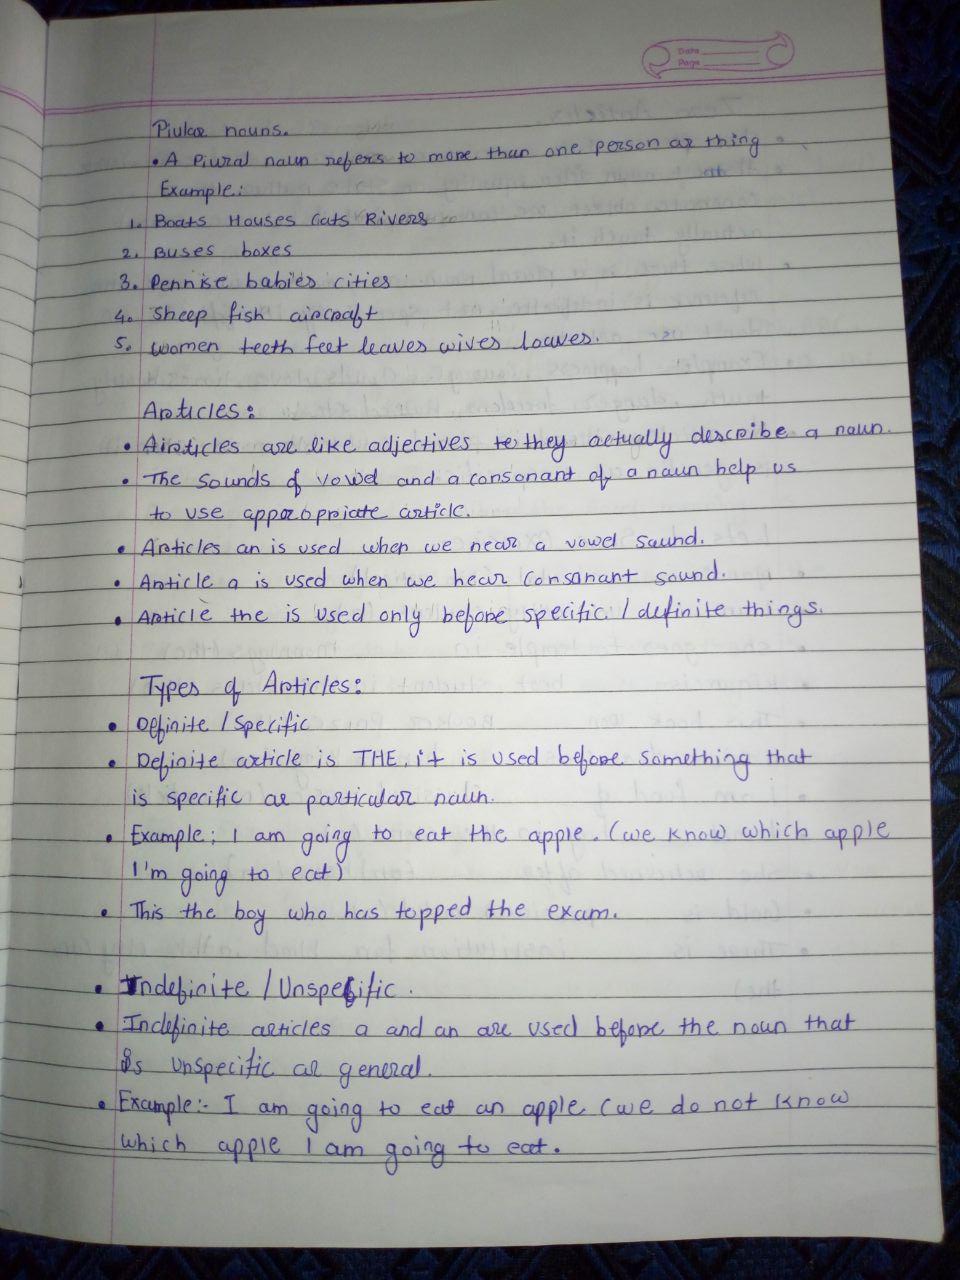 Date
Page
Piulae nouns.
• A Piural naun refers to more than one person ar thing
Example:
1. Boats Houses Cats Rivers
2. Buses boxes
3. Pennise babies cities
4. Sheep fish aircraft
5. women teeth feet leaves wives loaves.
Articles:
• Airticles are like adjectives to they actually describe a naun.
• The sounds of vowel and a consonant of a naun help us
to use apparopriate article.
• Articles an is used when we near a vowel saund.
• Article a is used when we hear Consanant saund.
• Article the is used only before specific / definite things.
Types of Articles:
• Definite / Specific
• Definite article is THE, it is used before something that
is specific ar particular naun.
• Example: I am going to eat the apple. (we know which apple
I'm going to eat)
• This the boy who has topped the exam.
• Indefinite / Unspecific.
• Indefinite articles a and an are used before the noun that
is unspecific ar general.
• Example:- I am going to eat an apple (we do not know
which apple I am going to eat.